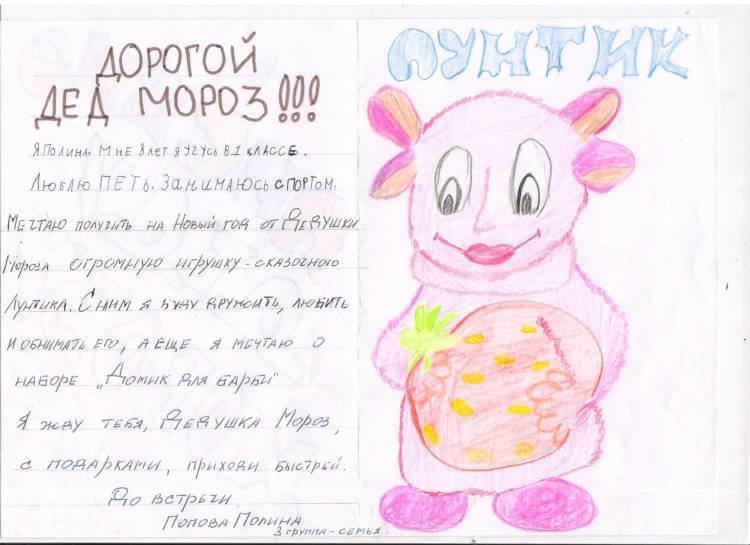 ДОРОГОЙ
ДЕД МОРОЗ!!!
Я ПОЛИНА. МНЕ 8 ЛЕТ Я УЧУСЬ В 1 КЛАССЕ.
ЛЮБЛЮ ПЕТЬ. ЗАНИМАЮСЬ СПОРТОМ.
МЕЧТАЮ ПОЛУЧИТЬ НА НОВЫЙ ГОД ОТ ДЕДУШКИ
МОРОЗА ОГРОМНУЮ ИГРУШКУ-СКАЗОЧНОГО
ЛУНТИКА. С НИМ Я БУДУ ДРУЖИТЬ, ЛЮБИТЬ
И ОБНИМАТЬ ЕГО, А ЕЩЕ Я МЕЧТАЮ О
НАБОРЕ „ДОМИК ДЛЯ БАРБИ"
Я ЖДУ ТЕБЯ, ДЕДУШКА МОРОЗ,
С ПОДАРКАМИ, ПРИХОДИ БЫСТРЕЙ.
ДО ВСТРЕЧИ
ПОПОВА ПОЛИНА
3 ГРУППА-СЕМЬЯ.
ЛУНТИК